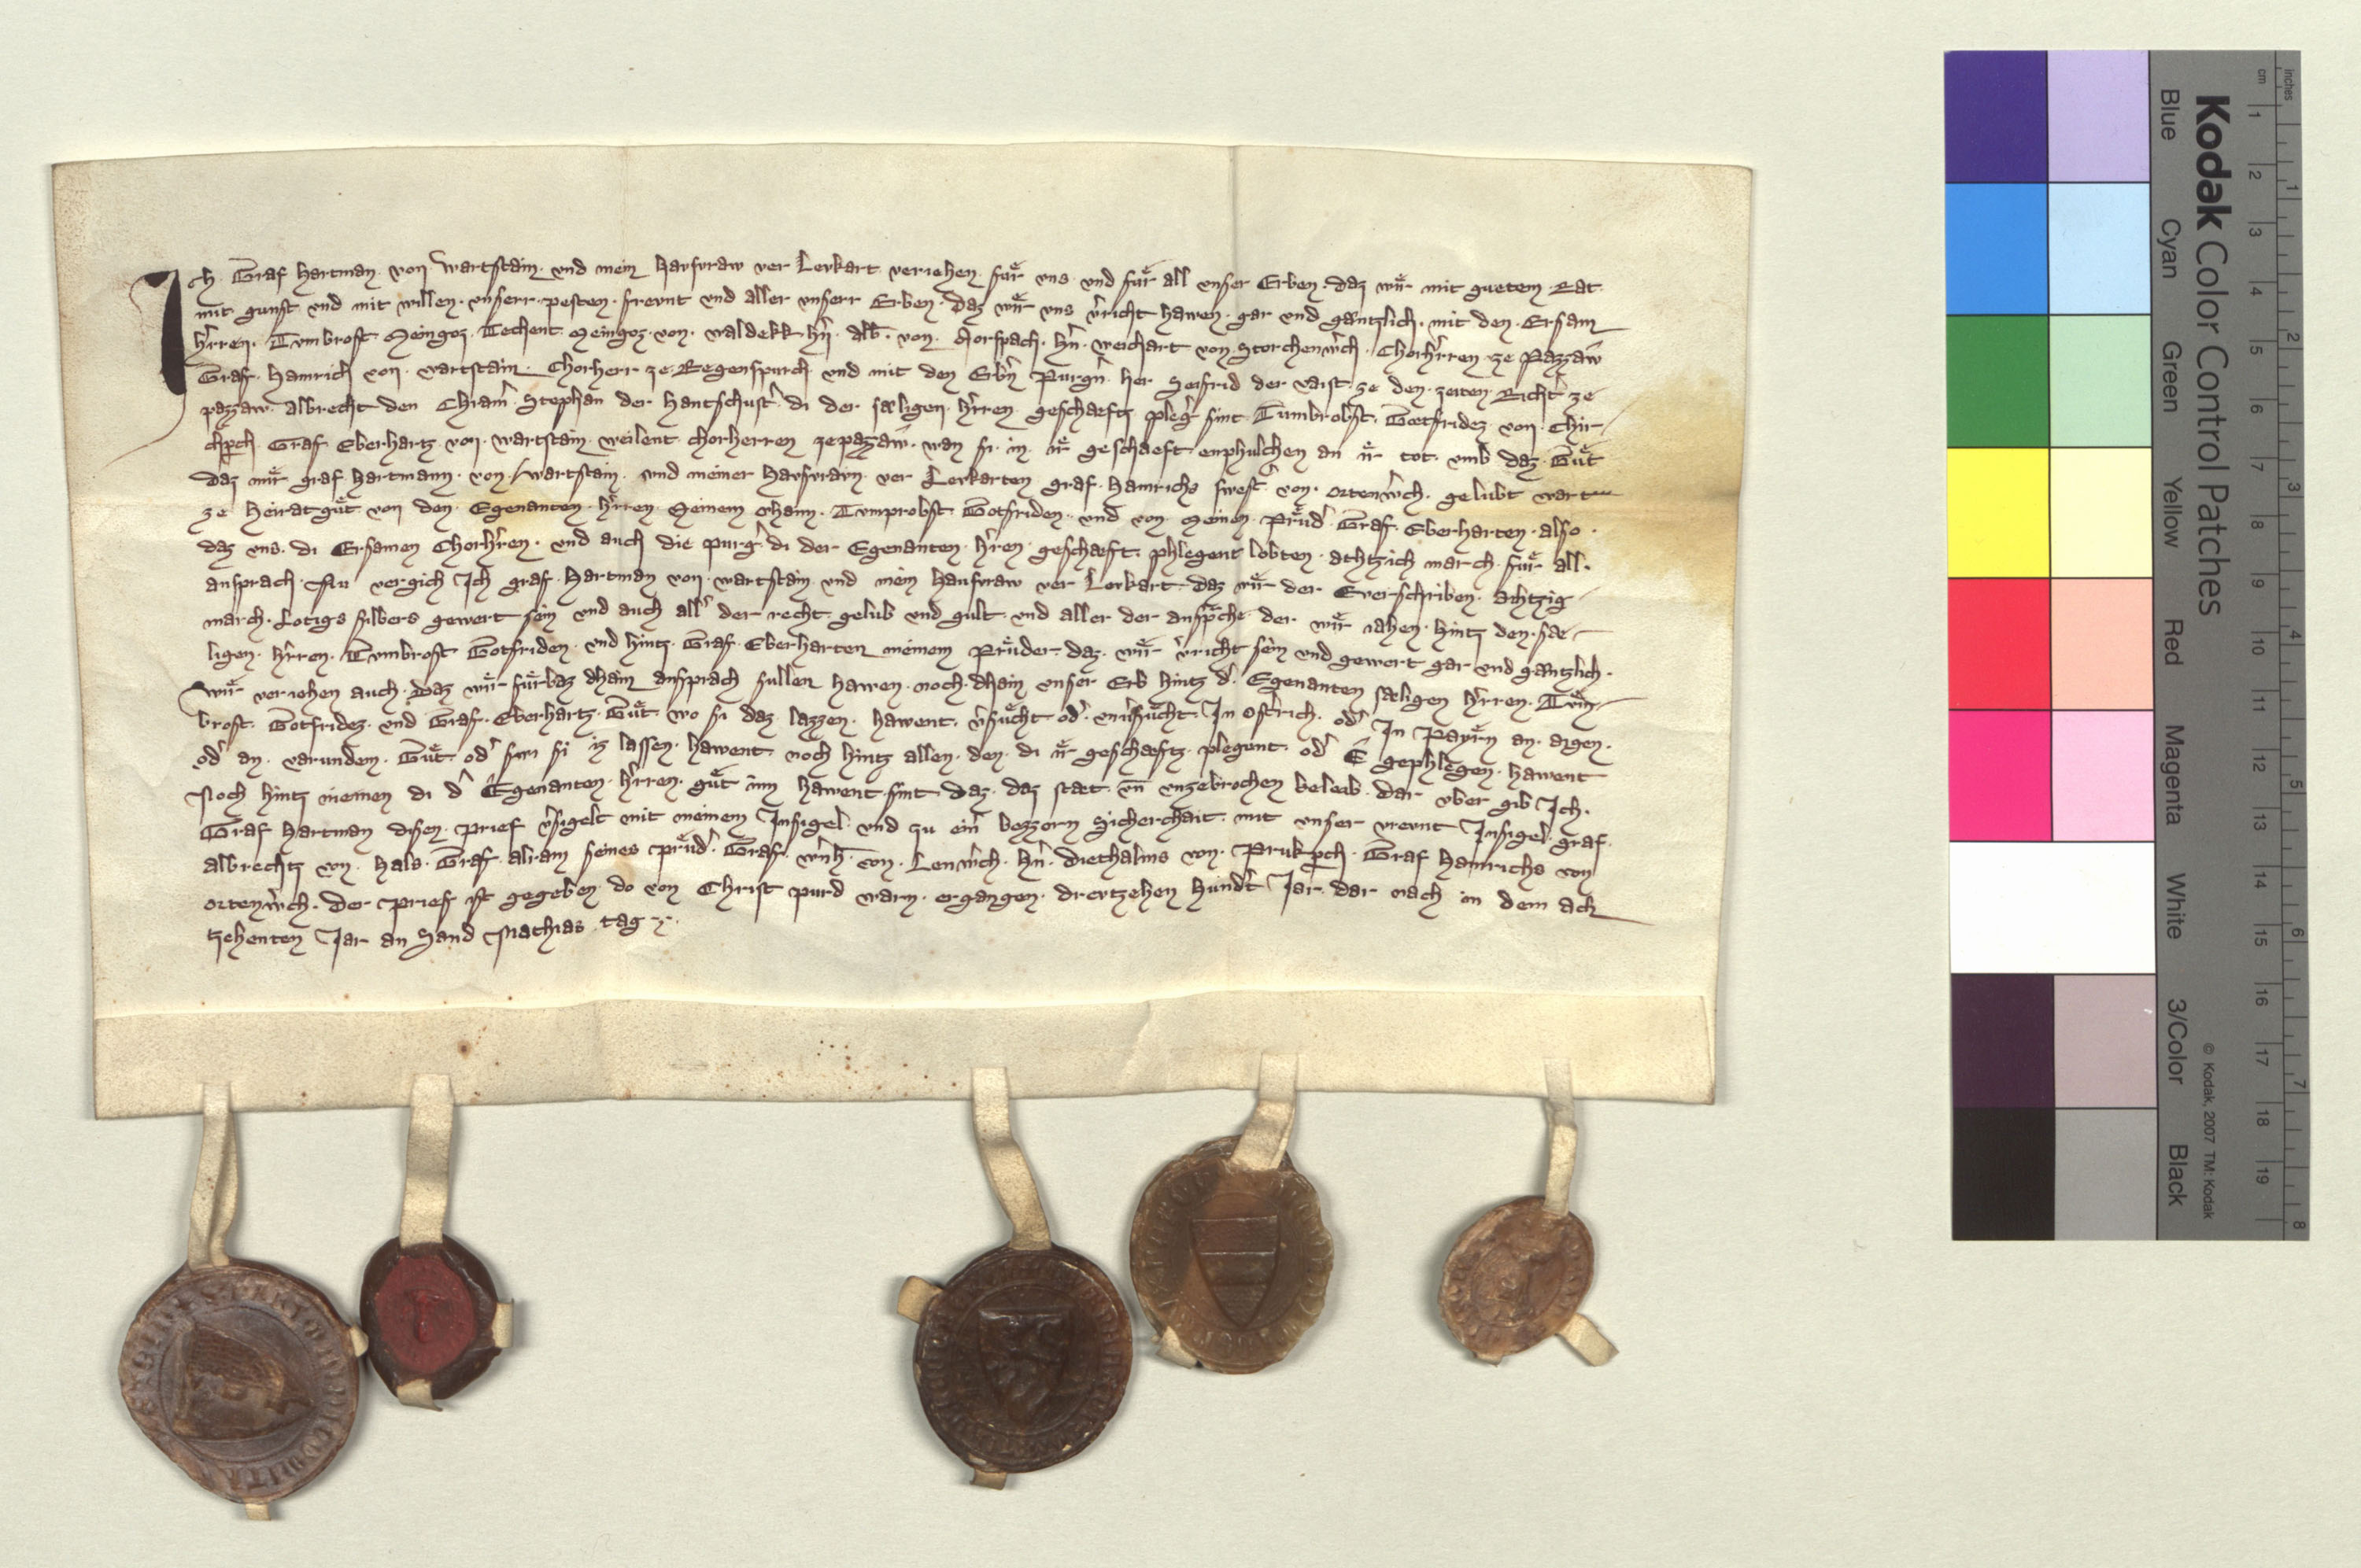 Ich Graf Hartman · von Wartstain · vnd mein Hausvraw ver Levkart veriehen · fuͤr vns · vnd fuͤr all vnser Erben · daz wuͤr mit guetem · Rat
mit gunst vnd mit willen · vnserr · pesten · frevnt vnd aller vnserr Erben · daz wuͤr vns v̓richt hawen · gar vnd gæntzlich · mit den · Ersam
h̓rren · Tvmbrost Meingoz · Techent Meingoz · von · Waldekk h̓n · Alb̄ · von · Morspach · h̓n · Weichart von Storchenw̓ch · Chorh̓rren · ze Pazzaw
Graf · Hainrich von · Wartstain · Chorherr ze Regenspurch · vnd mit den Erb̓n Purg̓n · her Seifrid der Vaist · ze den · zeiten · Richt̓ ze
pazzaw · Albrecht den Chram̓ · Stephan der Hantschust̓ · di der sæligen · h̓rren · geschæftz pfleg̓ sint · Tumbrobst · Gotfridez von · Chir
chpch Graf Eberhartz · von · Wartstain · weilent chorherren zepazzaw · wan si · in · iͤr geschæft enphulchen an iͤr tot · vmb daz · Guͤt
daz miͤr graf Hartmann · von · Wartstain · vnd meiner Hausvrawn · ver Levkarten graf · Hainrichs swest̓ · von · Ortenw̓ch · gelubt wart
ze heiratguͤt von den · Egenanten · h̓rren · Meinem ohaim · Tvmprobst Gotfriden · vnd von · Meinen · Pruͤd̓ · Graf · Eberharten · also ·
daz vns · di Ersamen Chorh̓ren · vnd auch die purg̓ · di der Egenanten · h̓ren · geschæft · phlegent lobten · achtzich march · fuͤr all ·
ansprach · Nu vergich Ich graf · Hartman von · Wartstain · vnd mein hausvraw ver Levkart · daz wuͤr der · schriben · achtzig
march · Lotigs silbers gewert sein vnd auch all̓ der recht · gelub vnd gult · vnd aller der ansp̓che · der · wuͤr iahen · hintz den · sæ
ligen · h̓rren · Tvmbrost Gotfriden · vnd hintz · Graf · Eberharten meinem Pruͤder · daz · wuͤr v̓richt sein vnd gewert gar vnd gæntzlich ·
Wuͤr veriehen auch · daz wuͤr fuͤrbaz dhain ansprach sullen hawen · noch · dhain vnser Erb hintz d̓ · Egenanten sæligen h̓rren · Tum
brost · Gotfridez · vnd Graf · Eberhartz · Guͤt · wo si daz lazzen · hawent · v̓suͤcht od̓ · vnv̓suͤcht · In Ost̓rich · od̓ In Payrn an · aigen ·
od̓ an · varundem · Guͤt · od̓ swi si iz lassen · hawent · noch hintz allen · den · di iͤr geschæftz · plegent · od̓ E gephlegen · hawent
Noch hintz niemen di d̓ Egenanten · h̓rren · guͤt inn hawent · sint daz · daz stæt · vn̄ vnzebrochen beleib · Dar vber gib Ich ·
Graf Hartman disen · prief v̓sigelt mit meinem Insigel · vnd zu ein̓ bezzern Sicherchait · mit vnser vrevnt Insigel · graf ·
Albrechtz von · Hals · Graf · Alram seines pruͤd̓ · Graf · w̓nh̄ · von · Lenw̓ch · h̓n · Diethalms von · Prukpch · Graf Hainrichs von
Ortenw̓ch · der Prief ist gegeben · do von Christ purd warn · ergangen · drevtzehen Hundt̓ Jar · dar nach in dem ach
tzehenten Jar an Sand Mathias · tag ·
Kodak Color Control Patches
Blue Cyan Green Yellow Red Magenta White 3/Color Black
© Kodak, 2007 TM: Kodak
cm 1 2 3 4 5 6 7 8 9 10 11 12 13 14 15 16 17 18 19
inches 1 2 3 4 5 6 7 8